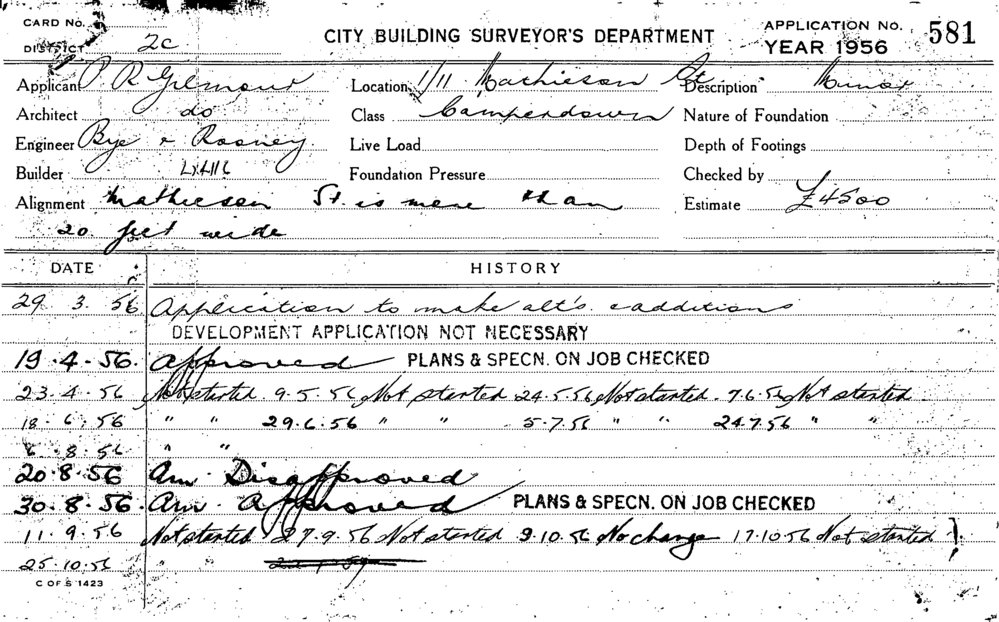 CARD No.
DISTRICT 2c
CITY BUILDING SURVEYOR'S DEPARTMENT
APPLICATION No. 581
YEAR 1956
Applicant P R Gilmour Location 1/11 Mathieson St Description Minor
Architect do Class Camperdown Nature of Foundation
Engineer Bye & Rooney Live Load Depth of Footings
Builder Foundation Pressure Checked by
Alignment Mathieson St. is more than Estimate £4500
20 feet wide
DATE HISTORY
29 3. 56 Application to make alt's & additions
DEVELOPMENT APPLICATION NOT NECESSARY
19.4.56. Approved PLANS & SPECN. ON JOB CHECKED
23.4.56 Not started 9.5.56 Not started 24.5.56 Not started. 7.6.56 Not started
18.6.56 " " 29.6.56 " " 5.7.56 " " 24.7.56 " "
6.8.56 " "
20.8.56 Am. Disapproved
30.8.56. Am. Approved PLANS & SPECN. ON JOB CHECKED
11.9.56 Not started 27.9.56 Not started 9.10.56 No change 17.10.56 Not started
25.10.56 " "
C OF S 1423